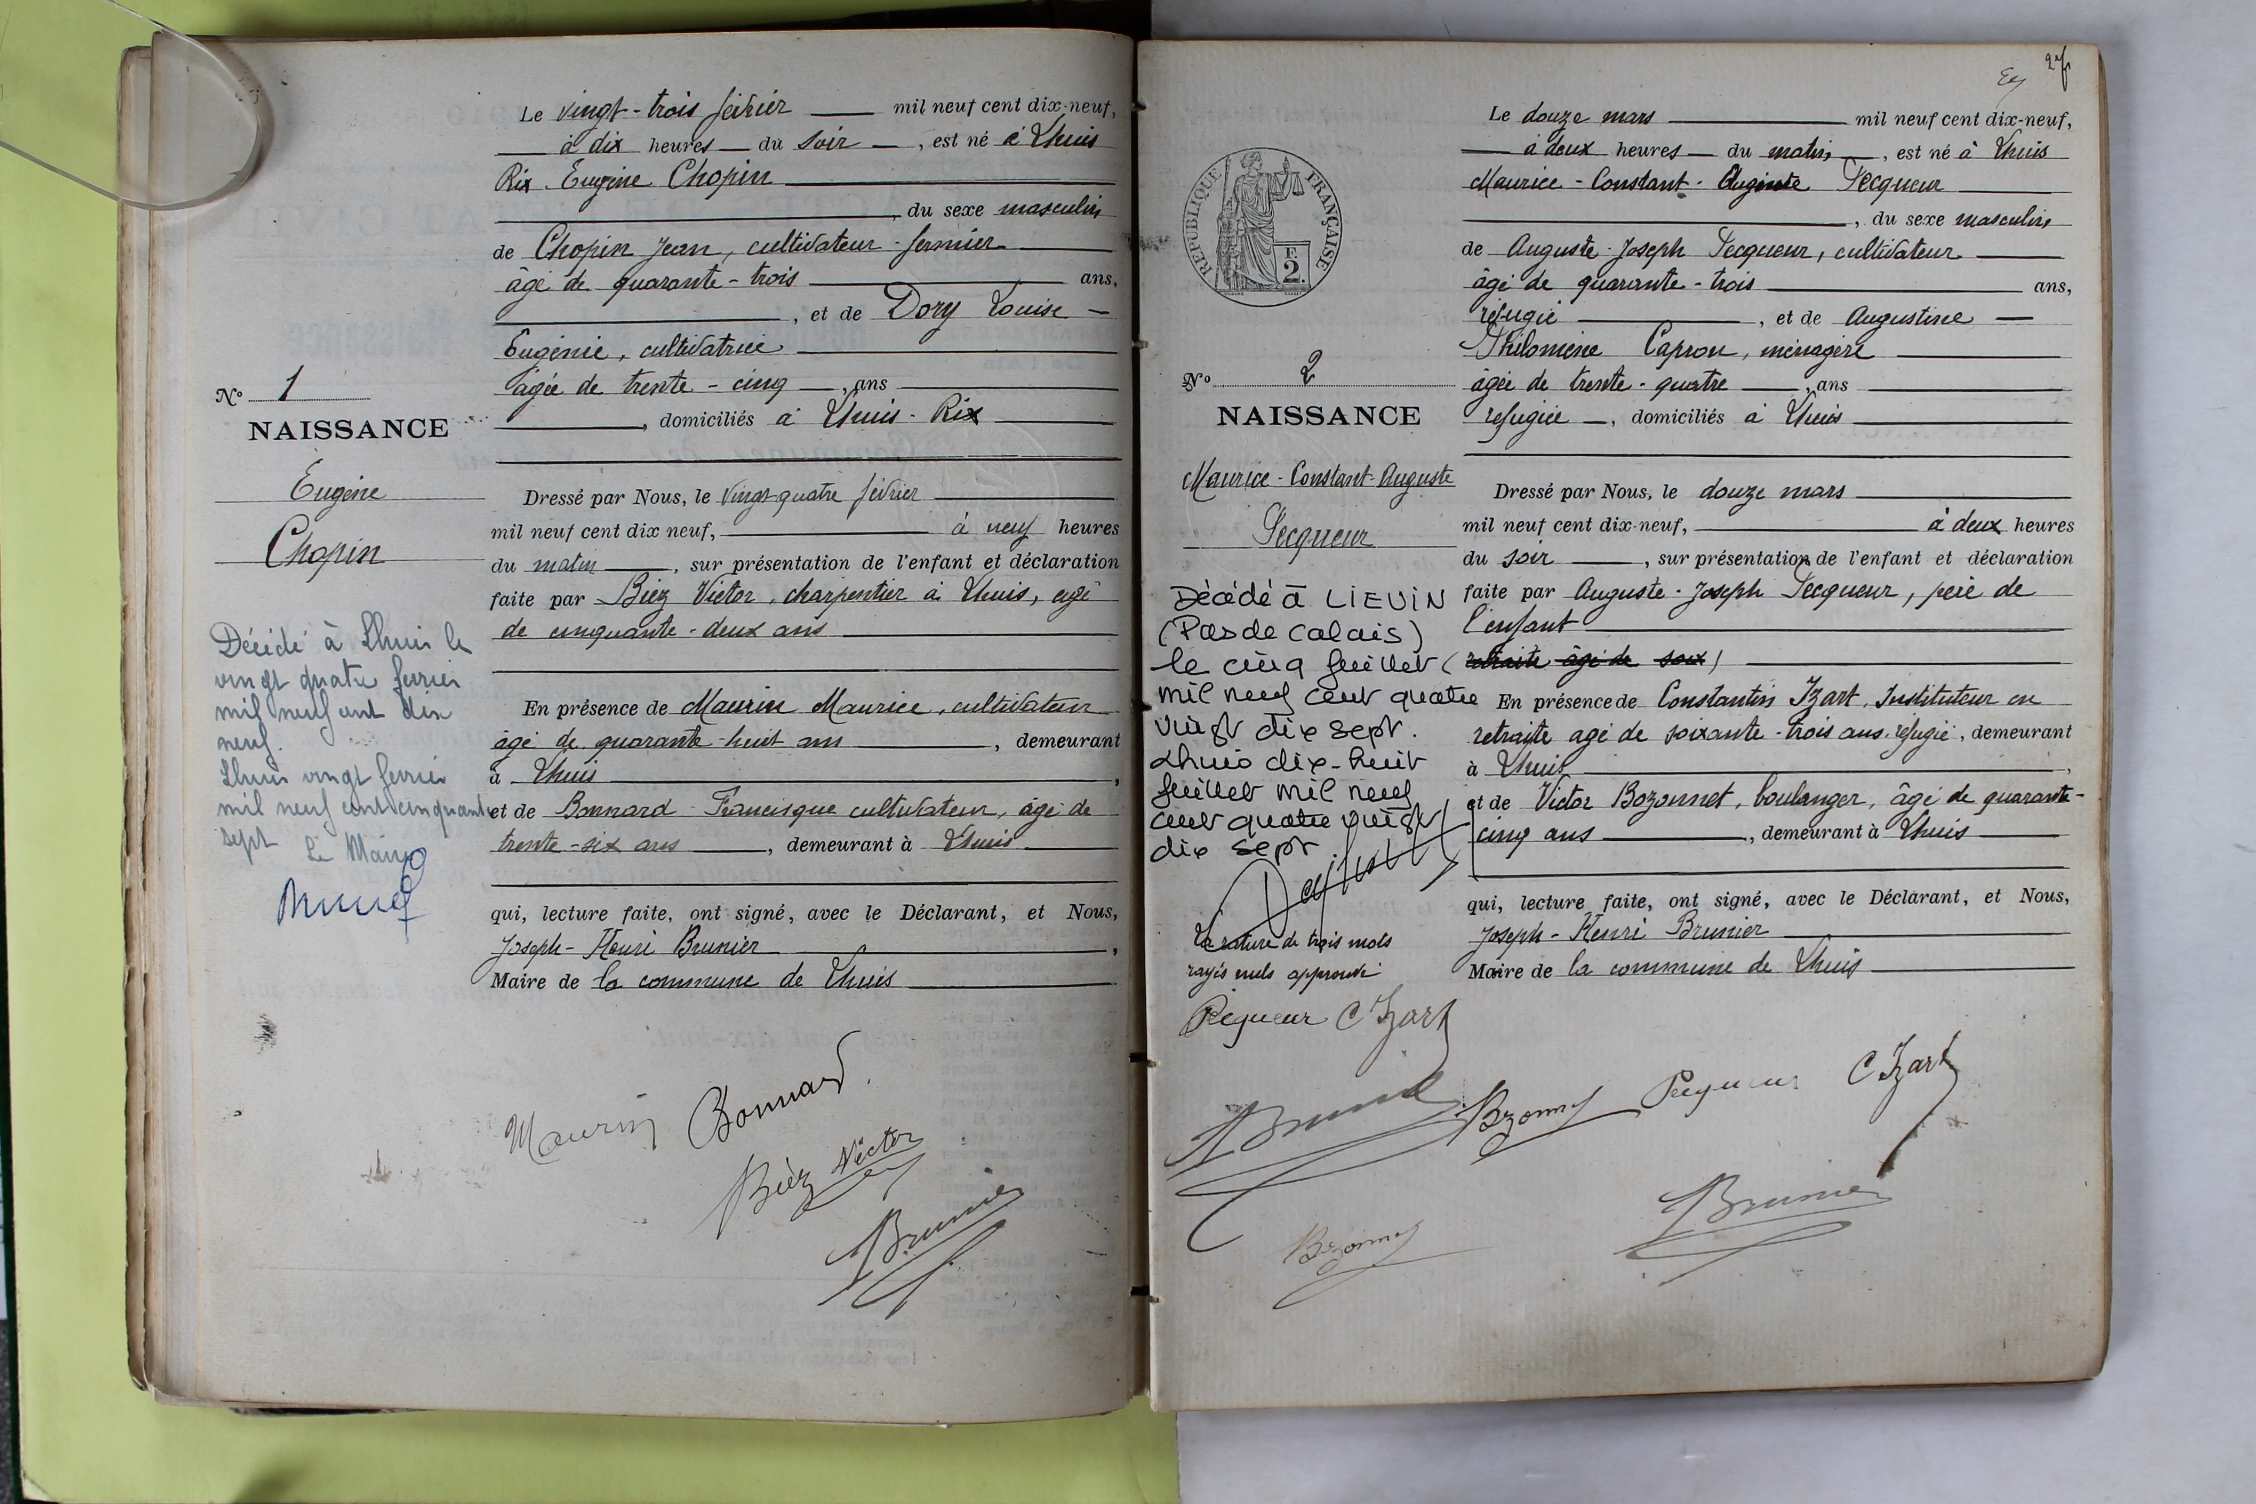 Le vingt-trois février mil neuf cent dix-neuf,
à dix heures du soir, est né à Lhuis
Rix Eugène Chopin
, du sexe masculin
de Chopin Jean, cultivateur-fermier
âgé de quarante-trois ans,
, et de Dory Louise
Eugénie, cultivatrice
âgée de trente-cinq, ans
, domiciliés à Lhuis-Rix
Nº 1
NAISSANCE
Eugène
Chopin
Dressé par Nous, le vingt-quatre février
mil neuf cent dix neuf, à neuf heures
du matin, sur présentation de l'enfant et déclaration
faite par Bièz Victor, charpentier à Lhuis, âgé
de cinquante-deux ans
En présence de Maurin Maurice, cultivateur
âgé de quarante-huit ans, demeurant
à Lhuis,
et de Bonnard Francisque cultivateur, âgé de
trente-six ans, demeurant à Lhuis
qui, lecture faite, ont signé, avec le Déclarant, et Nous,
Joseph-Henri Brunier,
Maire de la commune de Lhuis
Décédé à Lhuis le
vingt quatre fevrier
mil neuf cent dix
neuf.
Lhuis vingt fevrier
mil neuf cent cinquante
sept
Le Maire
Maurin Bonnard.
Bièz Victor
Brunier
27
Le douze mars mil neuf cent dix-neuf,
à deux heures du matin, est né à Lhuis
Maurice-Constant-Auguste Pecqueur
, du sexe masculin
de Auguste-Joseph Pecqueur, cultivateur
âgé de quarante-trois ans,
réfugié, et de Augustine
Philomène Capron, ménagère
âgée de trente-quatre, ans
réfugiée, domiciliés à Lhuis
RÉPUBLIQUE FRANÇAISE
F.
2.
Nº 2
NAISSANCE
Maurice-Constant-Auguste
Pecqueur
Dressé par Nous, le douze mars
mil neuf cent dix-neuf, à deux heures
du soir, sur présentation de l'enfant et déclaration
faite par Auguste-Joseph Pecqueur, père de
l'enfant
(retraite âgé de soix)
En présence de Constantin Izart, Instituteur en
retraite agé de soixante-trois ans réfugié, demeurant
à Lhuis,
et de Victor Bozonnet, boulanger, âgé de quarante-
cinq ans, demeurant à Lhuis
qui, lecture faite, ont signé, avec le Déclarant, et Nous,
Joseph-Henri Brunier
Maire de la commune de Lhuis
Décédé à LIEVIN
(Pas de Calais)
le cinq juillet
mil neuf cent quatre
vingt dix sept.
Lhuis dix-huit
juillet mil neuf
cent quatre vingt
dix sept
La rature de trois mots
rayés nuls approuvé
Pecqueur C Izart
Brunier Bozonnet Pecqueur C Izart
Bozonnet Brunier